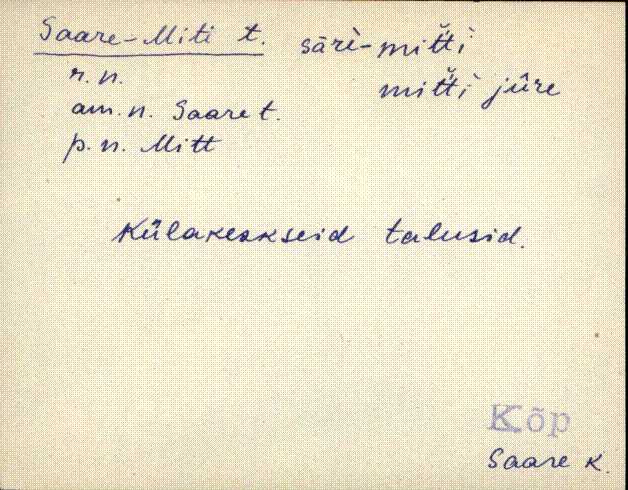 Saare-Miti t. säŕi-mit̆ti
r. n. mit̆ti jûre
am. n. Saare t.
p. n. Mitt
Külakeskseid talusid.
Kõp
Saare k.